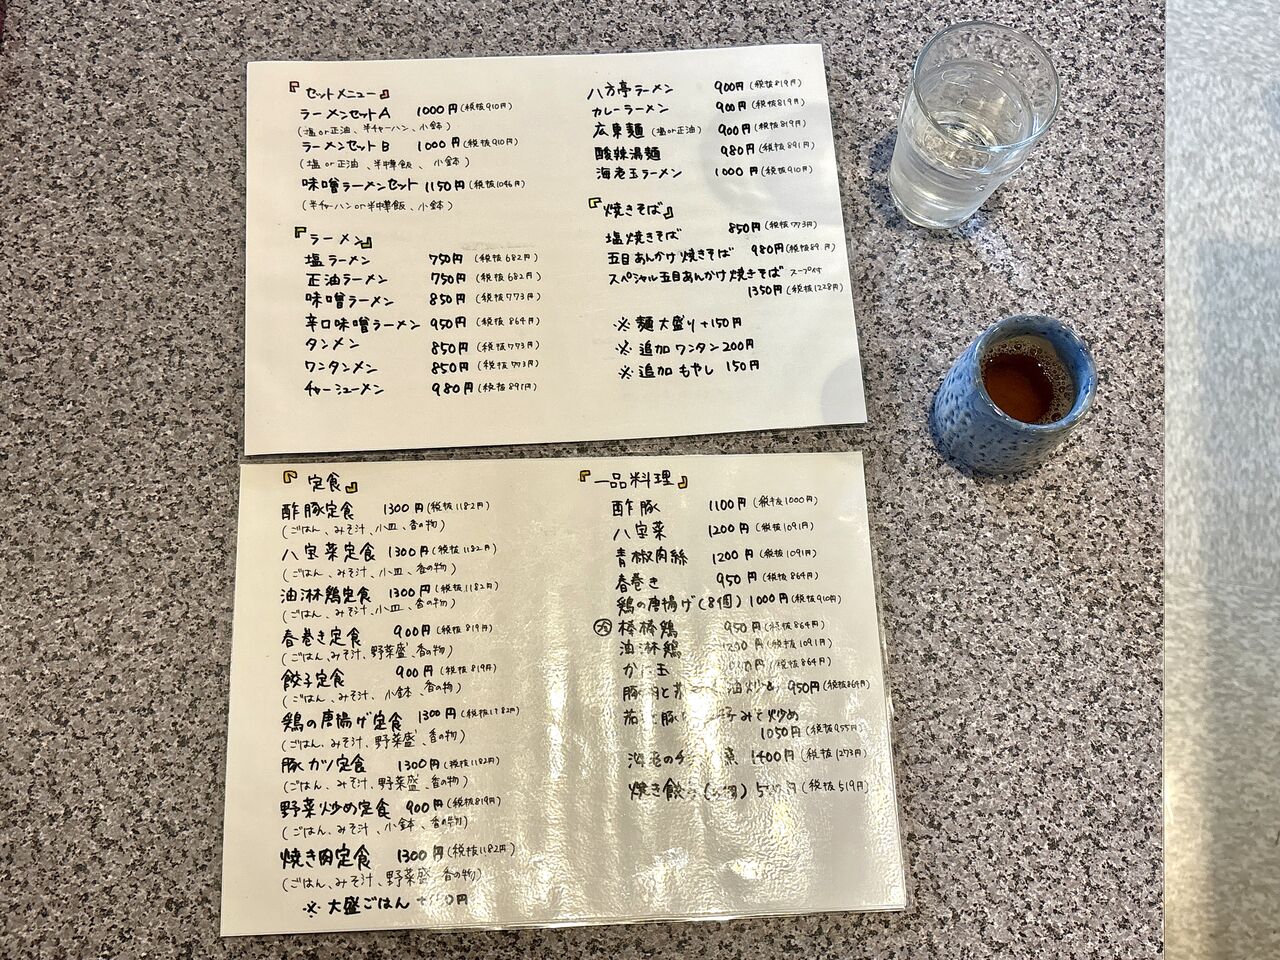 『セットメニュー』
ラーメンセットA 1000円(税抜910円)
(塩or正油、半チャーハン、小鉢)
ラーメンセットB 1000円(税抜910円)
(塩or正油、半中華飯、小鉢)
味噌ラーメンセット 1150円(税抜1046円)
(半チャーハンor半中華飯、小鉢)
『ラーメン』
塩ラーメン 750円(税抜682円)
正油ラーメン 750円(税抜682円)
味噌ラーメン 850円(税抜773円)
辛口味噌ラーメン 950円(税抜864円)
タンメン 850円(税抜773円)
ワンタンメン 850円(税抜773円)
チャーシューメン 980円(税抜891円)
八方亭ラーメン 900円(税抜819円)
カレーラーメン 900円(税抜819円)
広東麺(塩or正油) 900円(税抜819円)
酸辣湯麺 980円(税抜891円)
海老玉ラーメン 1000円(税抜910円)
『焼きそば』
塩焼きそば 850円(税抜773円)
五目あんかけ焼きそば 980円(税抜891円)
スペシャル五目あんかけ焼きそば スープ付
1350円(税抜1228円)
※麺大盛り+150円
※追加ワンタン200円
※追加もやし150円
『定食』
酢豚定食 1300円(税抜1182円)
(ごはん、みそ汁、小皿、香の物)
八宝菜定食 1300円(税抜1182円)
(ごはん、みそ汁、小皿、香の物)
油淋鶏定食 1300円(税抜1182円)
(ごはん、みそ汁、小皿、香の物)
春巻き定食 900円(税抜819円)
(ごはん、みそ汁、野菜盛、香の物)
餃子定食 900円(税抜819円)
(ごはん、みそ汁、小鉢、香の物)
鶏の唐揚げ定食 1300円(税抜1182円)
(ごはん、みそ汁、野菜盛、香の物)
豚カツ定食 1300円(税抜1182円)
(ごはん、みそ汁、野菜盛、香の物)
野菜炒め定食 900円(税抜819円)
(ごはん、みそ汁、小鉢、香の物)
焼き肉定食 1300円(税抜1182円)
(ごはん、みそ汁、野菜盛、香の物)
※大盛ごはん
『一品料理』
酢豚 1100円(税抜1000円)
八宝菜 1200円(税抜1091円)
青椒肉絲 1200円(税抜1091円)
春巻き 950円(税抜864円)
鶏の唐揚げ(8個) 1000円(税抜910円)
棒棒鶏 950円(税抜864円)
油淋鶏 1200円(税抜1091円)
かに玉 (税抜864円)
豚肉と 950円(税抜864円)
みそ炒め
1050円(税抜955円)
海老のチリ 1400円(税抜1273円)
焼き餃子 (税抜519円)